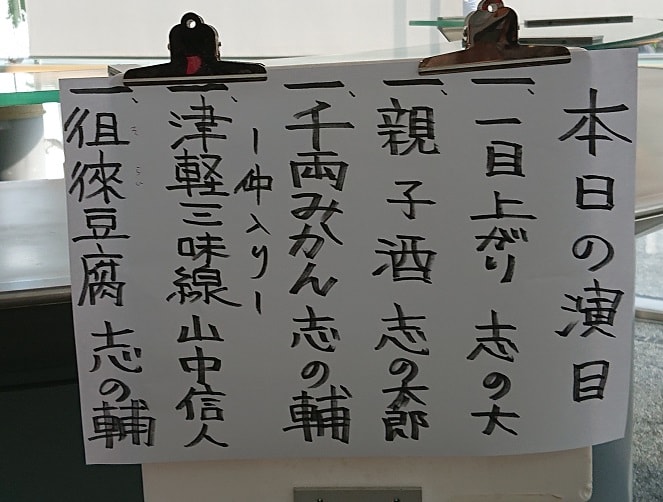 本日の演目
一、一目上がり 志の大
一、親子酒 志の太郎
一、千両みかん 志の輔
ー仲入りー
一、津軽三味線 山中信人
一、徂徠豆腐 志の輔